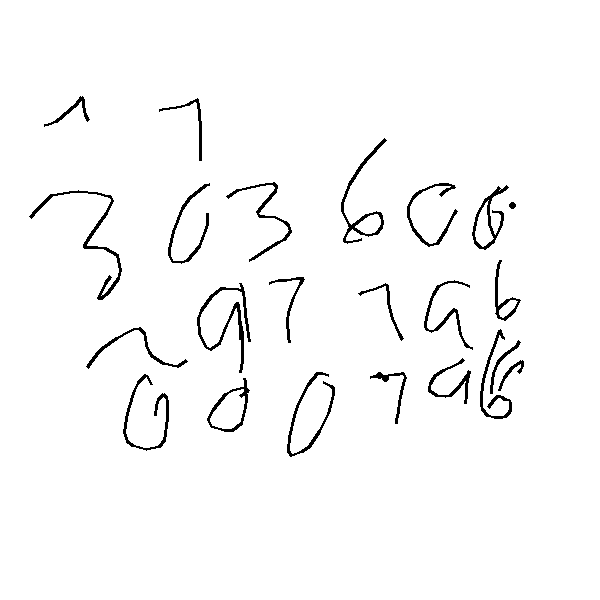 1 1
303 606
297 796
000796